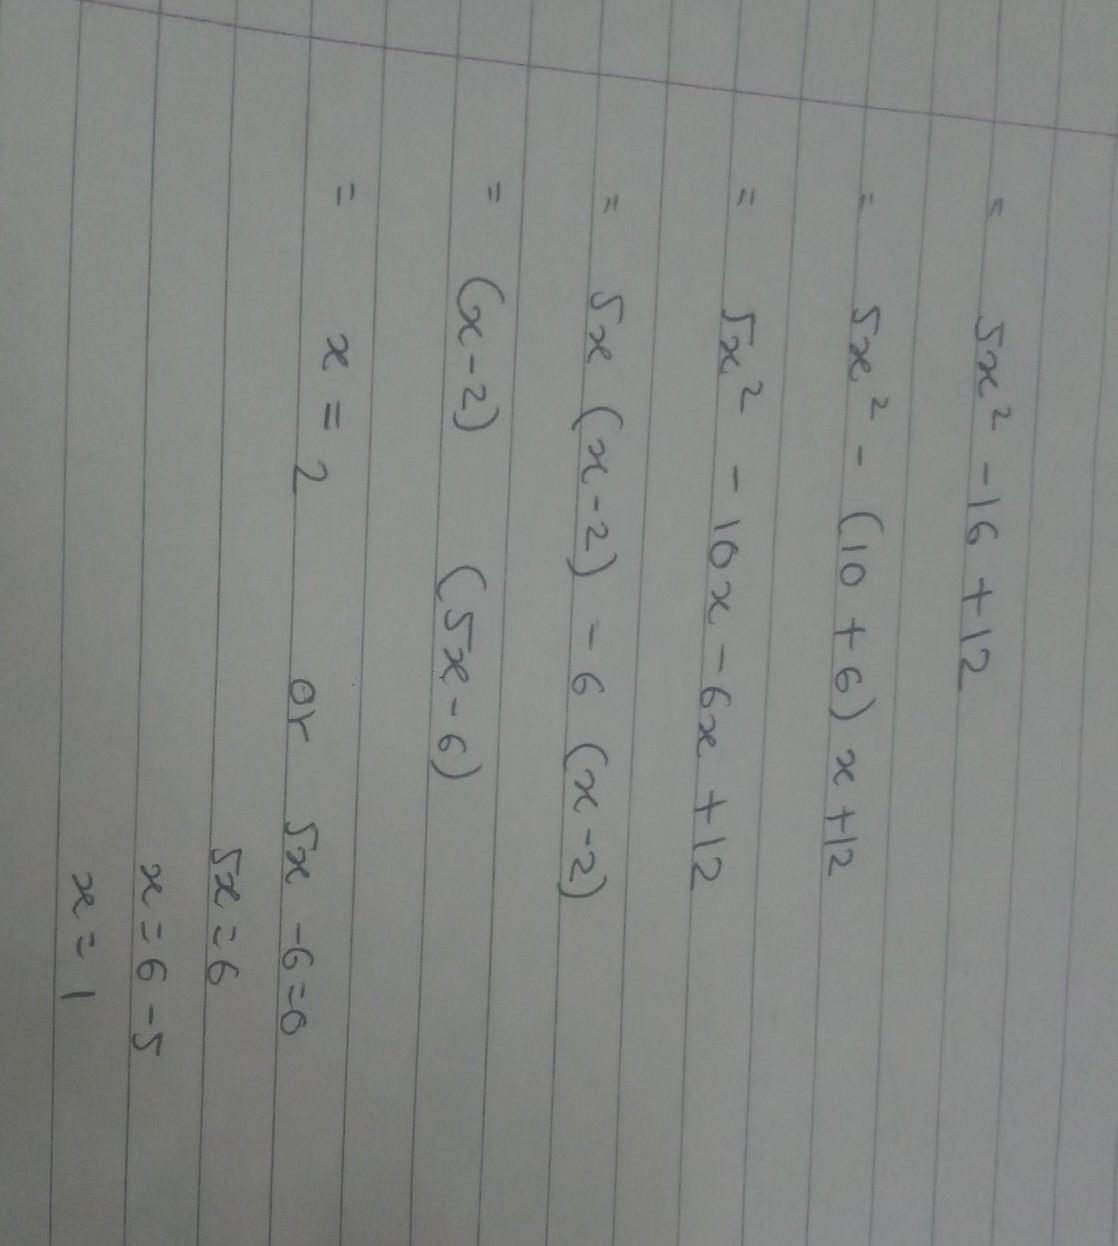 = 5x² - 16 + 12
= 5x² - (10 + 6) x + 12
= 5x² - 10x - 6x + 12
= 5x (x - 2) - 6 (x - 2)
= (x - 2) (5x - 6)
= x = 2 or 5x - 6 = 0
5x = 6
x = 6 - 5
x = 1